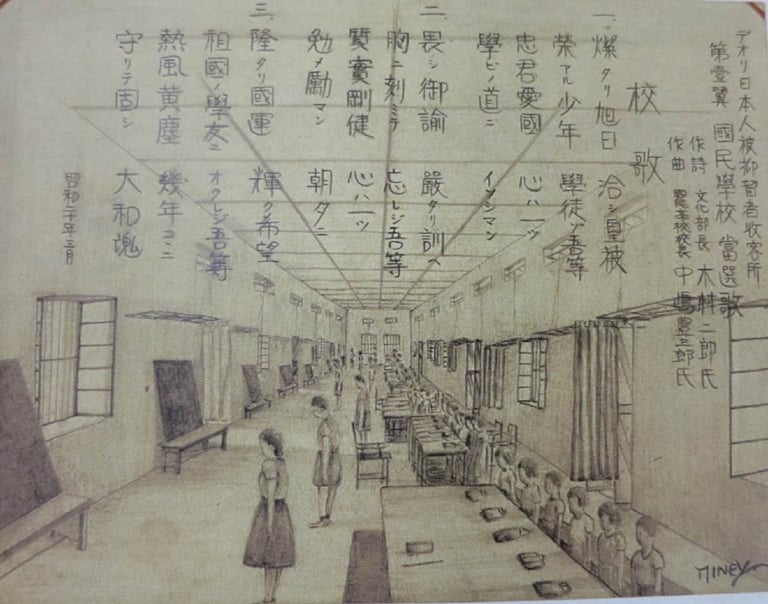 デオリ日本人被抑留者收容所
第壹翼 國民學校 當選歌
作詩 文化部長 木村二郎氏
作曲 國民學校校長 中嶋豊三郎氏
校歌
一、燦タリ旭日 洽シ皇被
榮アル少年 學徒ゾ吾等
忠君愛國 心ハ一ツ
學ビノ道ニ イソシマン
二、畏シ御諭 嚴タリ訓ヘ
胸ニ刻ミテ 忘レジ吾等
質實剛健 心ハ一ツ
勉メ勵マン 朝夕ニ
三、隆タリ國運 輝ク希望
祖國ノ學友ニ オクレジ吾等
熱風黄塵 幾年コヽニ
守リテ固シ 大和魂
昭和二十年三月
MINEY